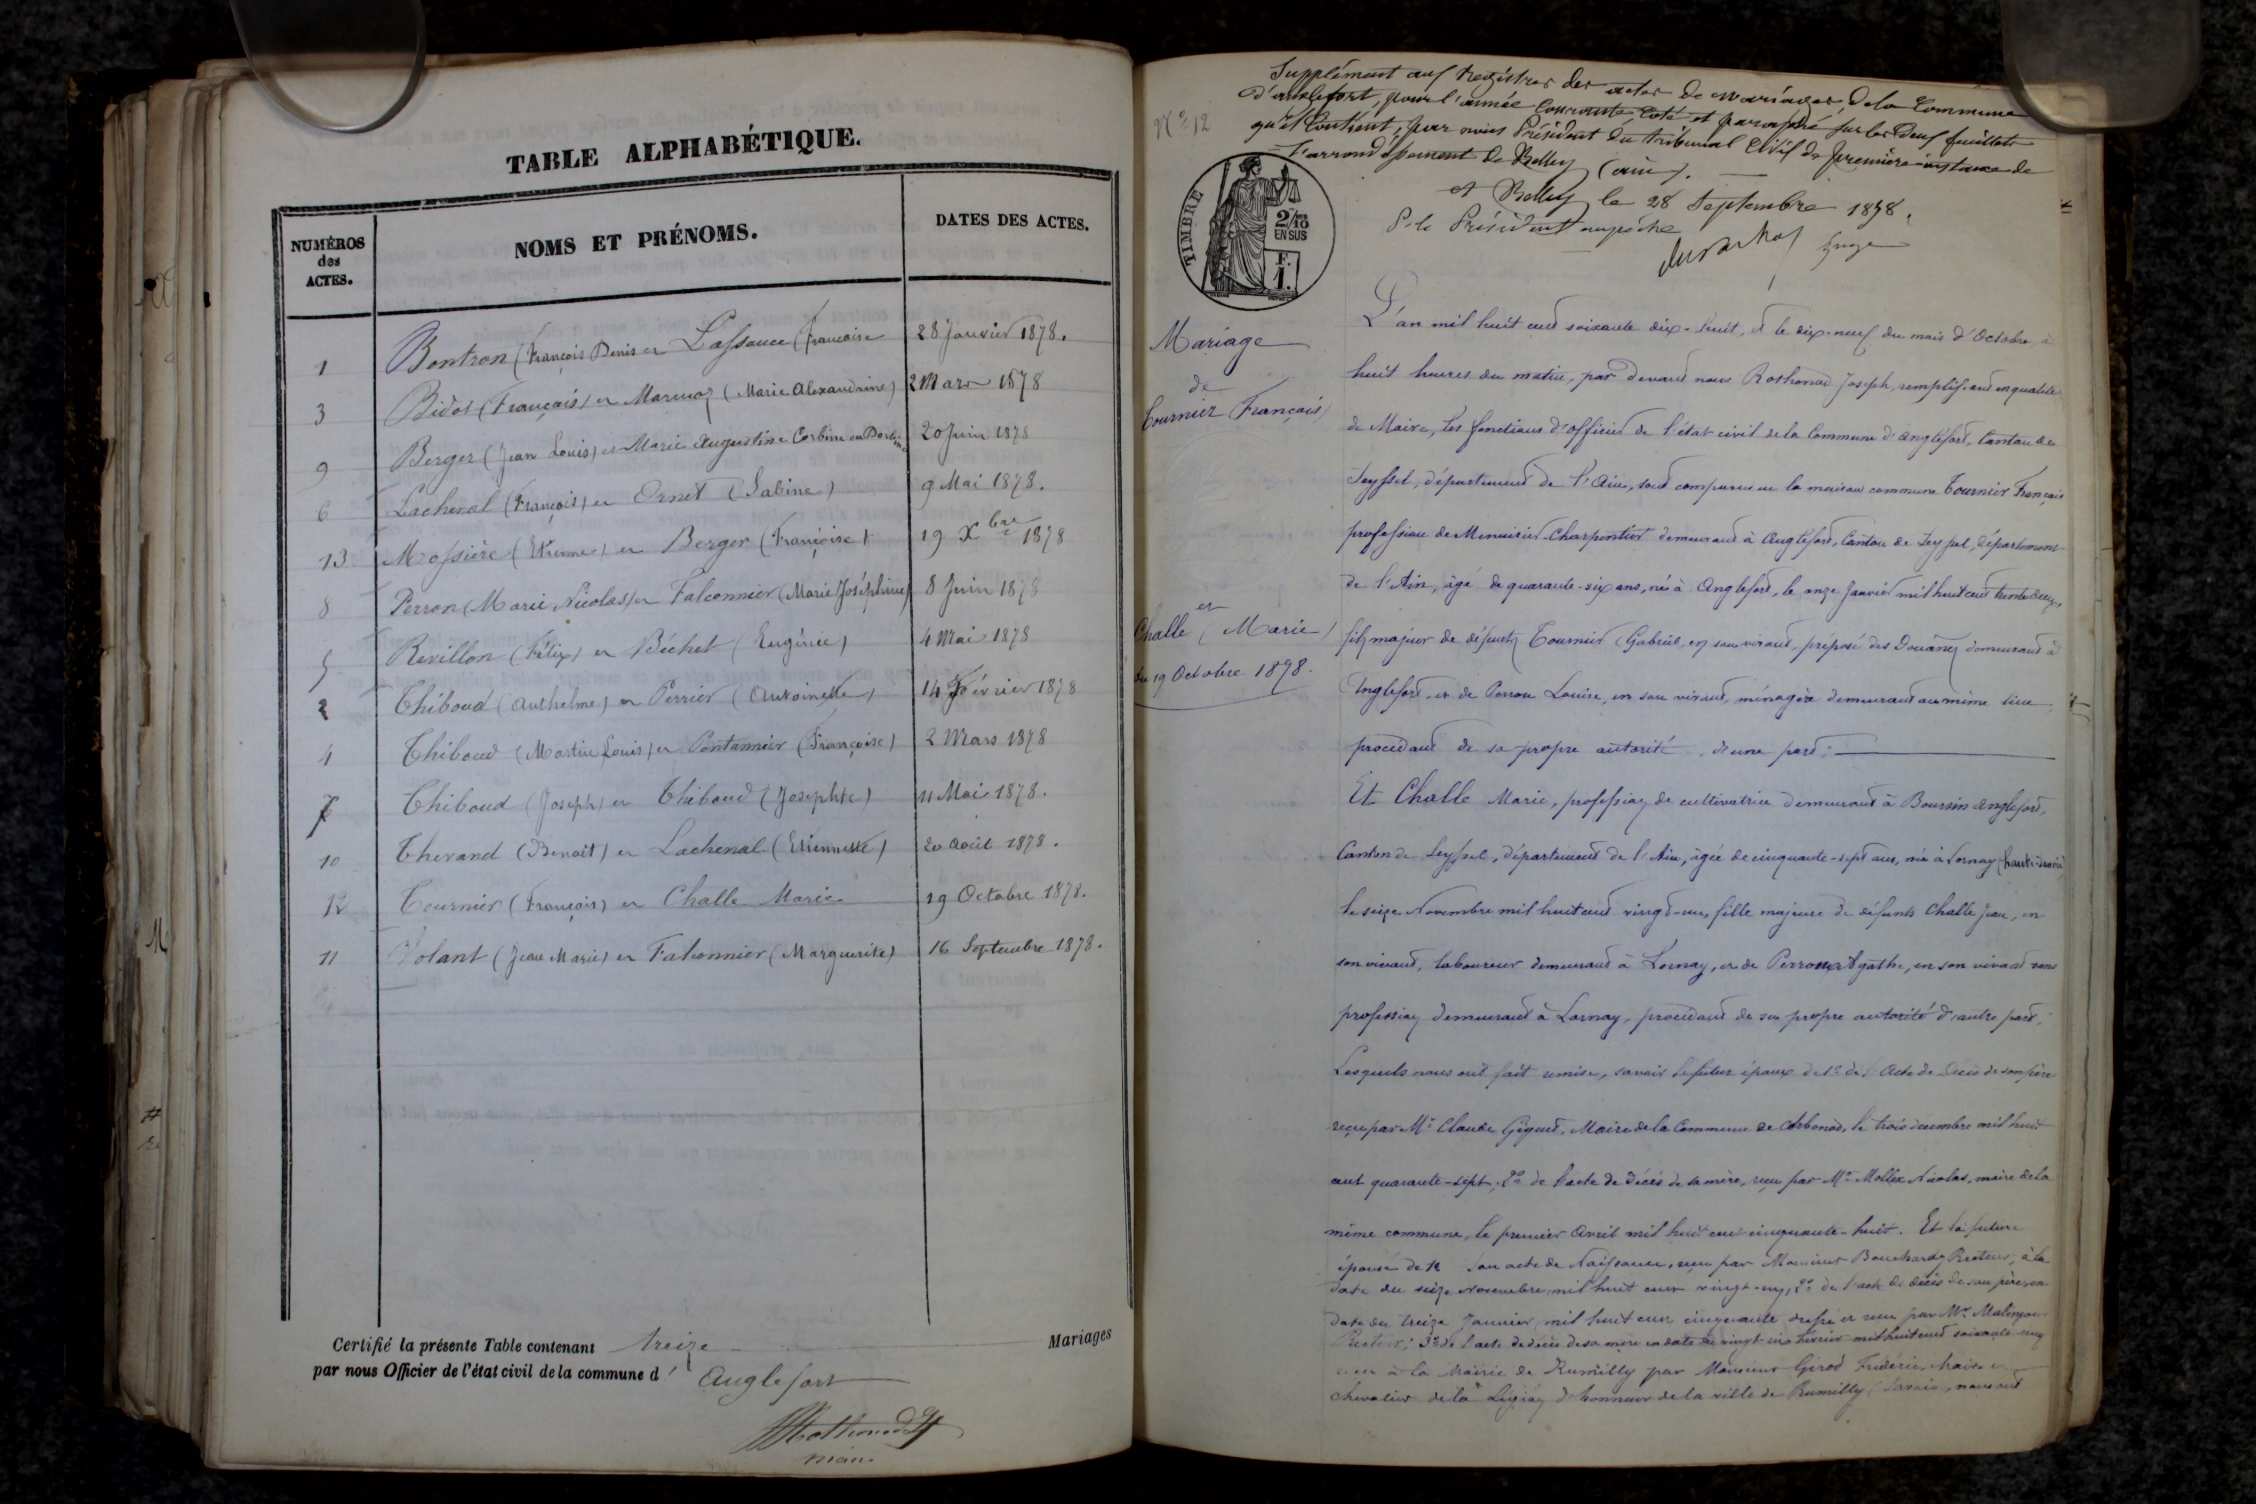 TABLE ALPHABÉTIQUE.
NUMÉROS des ACTES. NOMS ET PRÉNOMS. DATES DES ACTES.
1 Bontron (François Denis et Lassauce (françoise 28 Janvier 1878.
3 Bidot (François) et Marmoz (Marie Alexandrine) 2 Mars 1878
9 Berger (Jean Louis) et Marie Augustine Corbine ou 20 Juin 1878
6 Lachenal (François) et Ornet (Sabine) 9 Mai 1878.
13 Mossière (Etienne) et Berger (Françoise) 19 Xbre 1878
8 Perron (Marie Nicolas) et Falconnier (Marie Joséphine) 8 Juin 1878
5 Revillon (Félix) et Béchet (Eugénie) 4 Mai 1878
2 Thiboud (Anthelme) et Perrier (Antoinette) 14 Février 1878
4 Thiboud (Martin Louis) et Pontannier (Françoise) 2 Mars 1878
7 Thiboud (Joseph) et Thiboud (Josephte) 11 Mai 1878.
10 Therand (Benoît) et Lachenal (Etiennette) 20 Août 1878.
12 Tournier (François) et Challe Marie 19 Octobre 1878.
11 Volant (Jean Marie) et Falconnier (Marguerite) 16 Septembre 1878.
Certifié la présente Table contenant treize Mariages
par nous Officier de l'état civil de la commune d' Anglefort
Rothonod J
maire
Supplément aux Registres des actes de mariages, de la Commune
d'anglefort, pour l'année Courante Coté et paraphé sur les deux feuillets
qu'il Contient, par nous Président du tribunal Civil de première instance de
l'arrondissement de Belley (ain).
A Belley le 28 Septembre 1878.
P. le Président empêché
Juge
N° 12
TIMBRE
2/10 EN SUS
F. 1.
Mariage
de
Tournier François
et
Challe (Marie)
du 19 Octobre 1878.
L'an mil huit cent soixante dix-huit, et le dix-neuf du mois d'Octobre, à
huit heures du matin, par devant nous Rothonod Joseph, remplissant en qualité
de Maire, les fonctions d'officier de l'état civil de la Commune d'Anglefort, Canton de
Seyssel, département de l'Ain, sont comparus en la maison commune Tournier François
profession de Menuisier-Charpentier demeurant à Anglefort, Canton de Seyssel, département
de l'Ain, âgé de quarante-six ans, né à Anglefort, le onze Janvier mil huit cent trente deux,
fils majeur de défunts Tournier Gabriel, en son vivant, préposé des Douanes demeurant à
Anglefort, et de Perron Louise, en son vivant, ménagère demeurant au même lieu
procédant de sa propre autorité, d'une part;
Et Challe Marie, profession de cultivatrice demeurant à Boursin Anglefort,
Canton de Seyssel, département de l'Ain, âgée de cinquante-sept ans, née à Lornay (haute-savoie)
le seize Novembre mil huit cent vingt-un, fille majeure de défunts Challe Jean, en
son vivant, laboureur demeurant à Lornay, et de Perroux Agathe, en son vivant sans
profession demeurant à Lornay, procédant de sa propre autorité d'autre part;
Lesquels nous ont fait remise, savoir le futur époux de 1° de l'Acte de Décès de son père
reçu par Mr Claude Gignet, Maire de la Commune de Corbonod, le trois décembre mil huit
cent quarante-sept; 2° de l'acte de Décès de sa mère, reçu par Mr Mollex Nicolas, maire de la
même commune, le premier Avril mil huit cent cinquante-huit. Et la future
épouse de 1° son acte de Naissance, reçu par Monsieur Bouchardy Recteur, à la
date du seize Novembre mil huit cent vingt-un, 2° de l'acte de décès de son père, en
date du treize Janvier mil huit cent cinquante et reçu par Mr
Recteur; 3° de l'acte de décès de sa mère en date du vingt six Février mil huit cent soixante-cinq
reçu à la Mairie de Rumilly par Monsieur Girod Frédéric, Maire et
chevalier de la Légion d'honneur de la ville de Rumilly (Savoie, nous ont